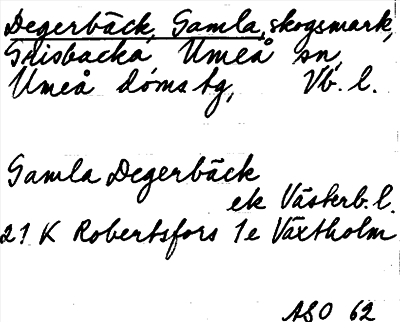 Degerbäck, Gamla, skogsmark,
Grisbacka, Umeå sn,
Umeå doms tg, Vb. l.
Gamla Degerbäck
ek Västerb. l.
21 K Robertsfors 1e Växtholm
ASO 62